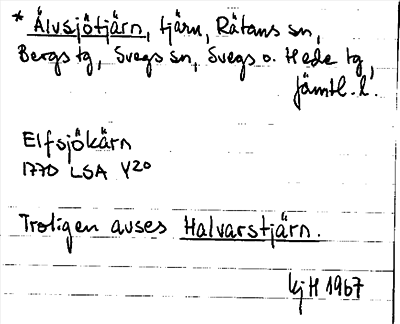 * Älvsjötjärn, tjärn, Rätans sn,
Bergs tg, Svegs sn, Svegs o. Hede tg,
Jämtl. l.
Elfsjökärn
1770 LSA Y20
Troligen avses Halvarstjärn.
kjH 1967